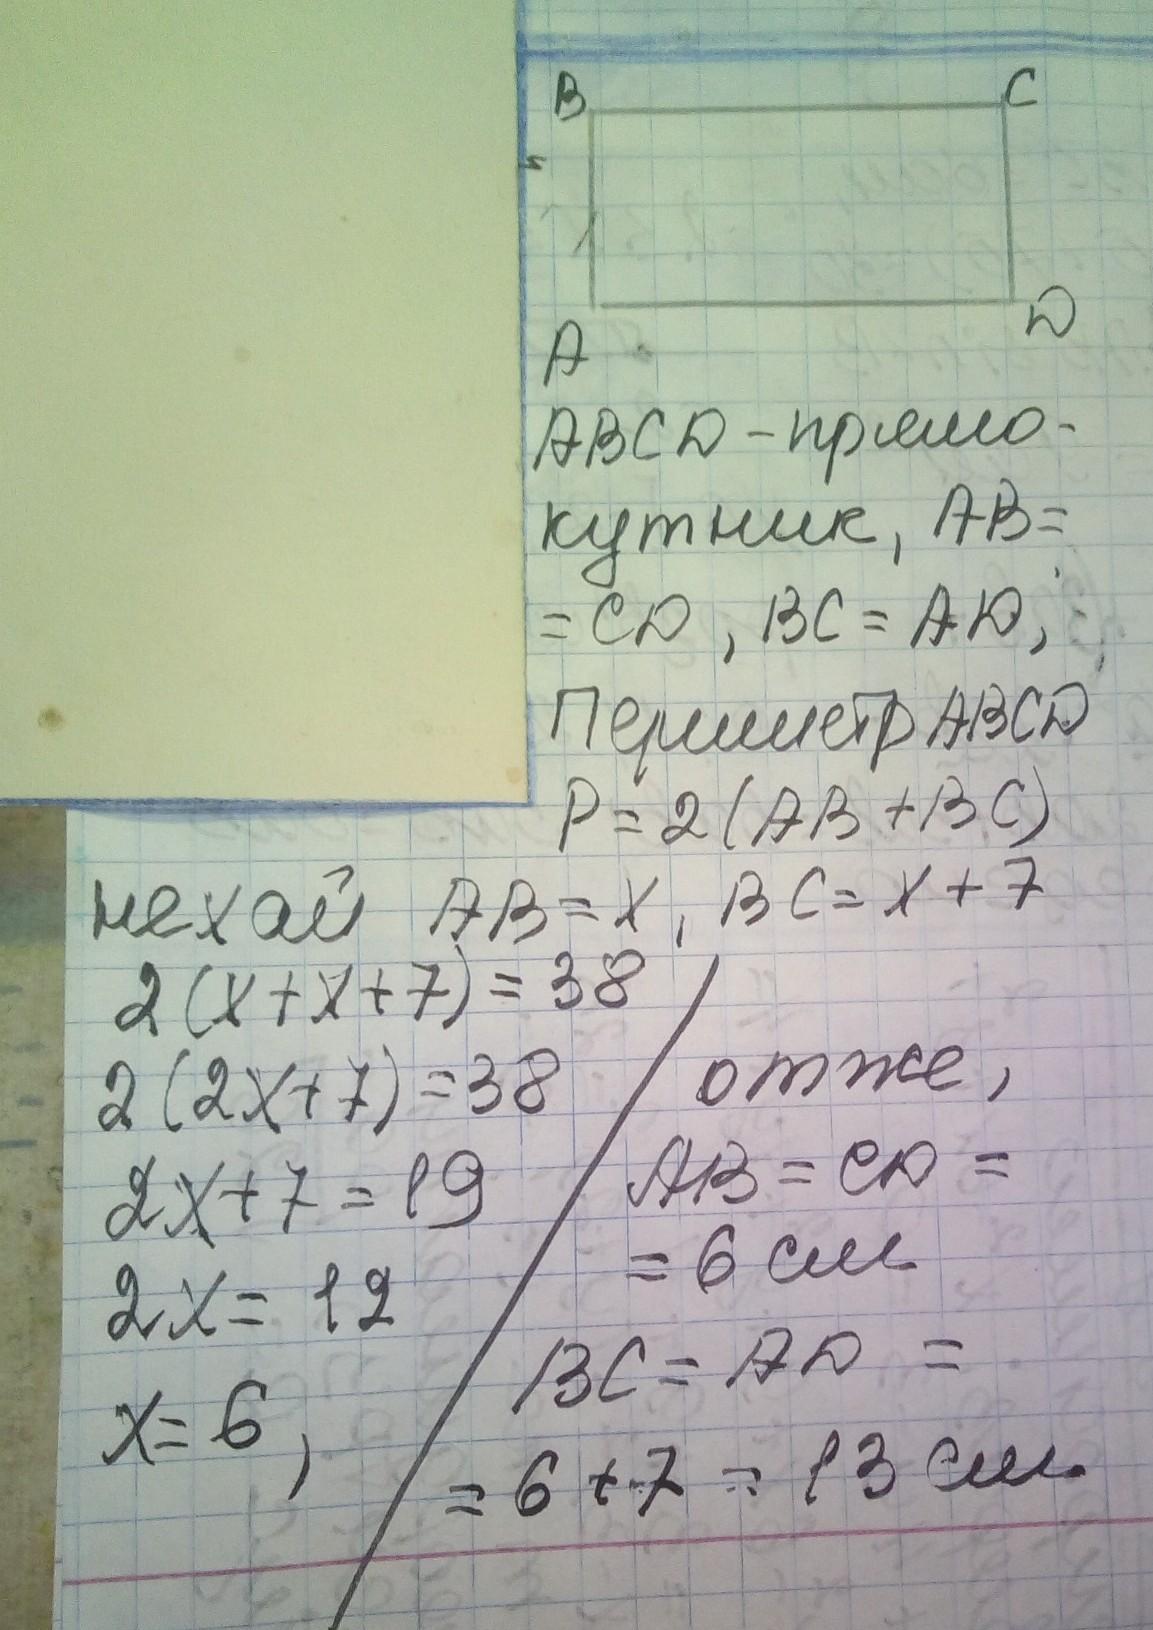 B C
A D
ABCD - прямо-
кутник, AB =
= CD, BC = AD,
Периметр ABCD
P = 2(AB + BC)
нехай AB = x, BC = x + 7
2(x + x + 7) = 38
2(2x + 7) = 38
2x + 7 = 19
2x = 12
x = 6,
отже,
AB = CD =
= 6 см
BC = AD =
= 6 + 7 = 13 см.